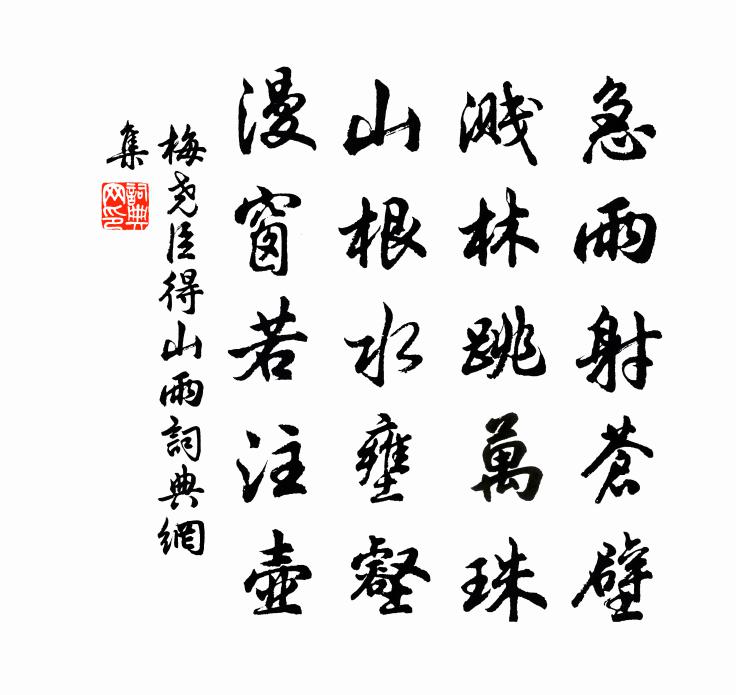 急雨射蒼壁
濺林跳萬珠
山根水壅壑
漫窗若注壺
梅堯臣得山雨詞典網
集
詞典
网印